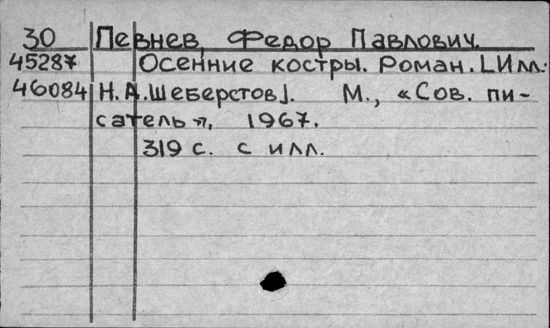 30 Певнев, Федор Павлович.
45287 Осенние костры. Роман. [Илл.:
46084 Н.А.Шеберстов]. М., «Сов. пи-
сатель», 1967.
319 с. с илл.